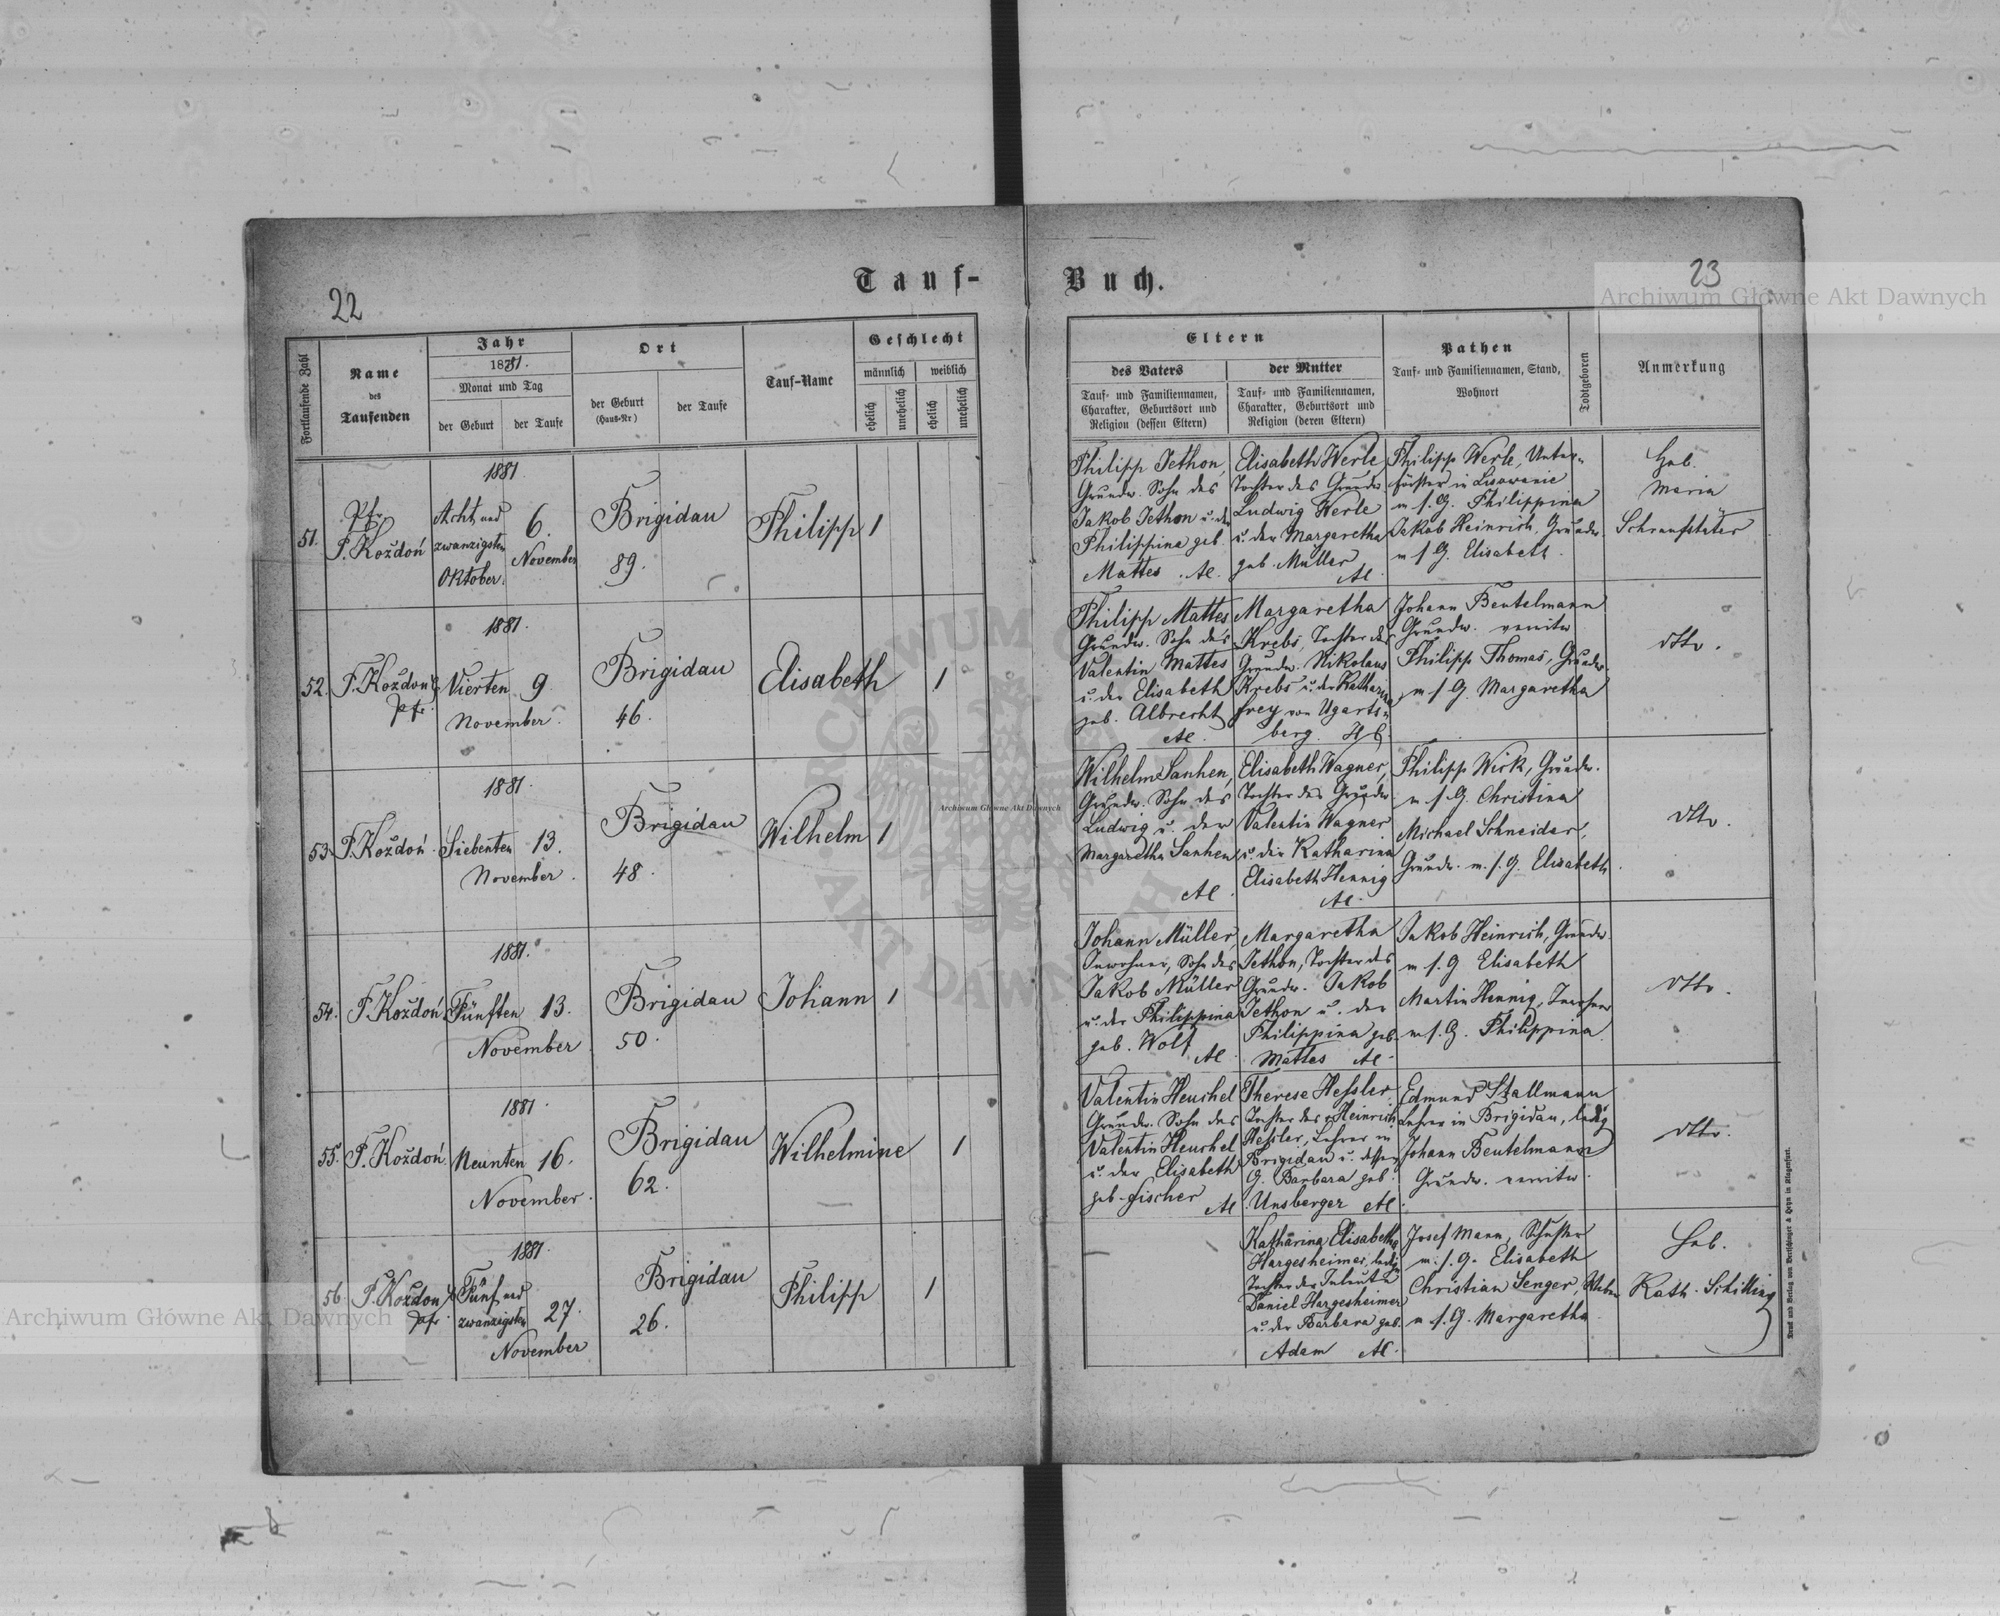 Tauf-Buch.
22
23
Fortlaufende Zahl
Name
des
Taufenden
Jahr
1881.
Monat und Tag
der Geburt
der Taufe
Ort
der Geburt
(Haus-Nr)
der Taufe
Tauf-Name
Geschlecht
männlich
weiblich
ehelich
unehelich
ehelich
unehelich
Eltern
des Vaters
Tauf- und Familiennamen,
Charakter, Geburtsort und
Religion (dessen Eltern)
der Mutter
Tauf- und Familiennamen,
Charakter, Geburtsort und
Religion (deren Eltern)
Pathen
Tauf- und Familiennamen, Stand,
Wohnort
Todtgeboren
Anmerkung
51.
Pfr.
P. Koždoń
1881.
Acht und
zwanzigsten
Oktober.
6.
November
Brigidau
89.
Philipp
1
Philipp Jethon,
Grundw. Sohn des
Jakob Jethon u. der
Philippina geb.
Mattes. AC.
Elisabeth Werle,
Tochter des Grundw.
Ludwig Werle
u. der Margaretha
geb. Müller
AC.
Philipp Werle, Unter-
förster in Lisowanie
m. s. G. Philippina
Jakob Heinrich, Grundw.
m. s. G. Elisabeth.
Heb.
Maria
Schraufstäter
52.
P. Koždoń
Pfr.
1881.
Vierten
November.
9
Brigidau
46.
Elisabeth
1
Philipp Mattes
Grundw. Sohn des
Valentin Mattes
u. der Elisabeth
geb. Albrecht
AC.
Margaretha
Krebs, Tochter des
Grundw. Nikolaus
Krebs u. der Katharina
Frey von Ugarts-
berg. HC.
Johann Beutelmann
Grundw.
Philipp Thomas, Grundw.
m. s. G. Margaretha
dtto.
53.
P. Koždoń.
1881.
Siebenten
November.
13.
Brigidau
48.
Wilhelm
1
Wilhelm Sanhen,
Grundw. Sohn des
Ludwig u. der
Margaretha Sanhen
AC.
Elisabeth Wagner,
Tochter des Grundw.
Valentin Wagner
u. der Katharina
Elisabeth Hennig
AC.
Philipp Wirk, Grundw.
m. s. G. Christina
Michael Schneider,
Grundw. m. s. G. Elisabeth
dtto.
54.
P. Koždoń
1881.
Fünften
November
13.
Brigidau
50.
Johann
1
Johann Müller,
Inwohner, Sohn des
Jakob Müller
u. der Philippina
geb. Wolf
AC.
Margaretha
Jethon, Tochter des
Grundw. Jakob
Jethon u. der
Philippina geb.
Mattes AC.
Jakob Heinrich, Grundw.
m. s. G. Elisabeth
Martin Hennig, Inwohner
m. s. G. Philippina.
dtto.
55.
P. Koždoń.
1881.
Neunten
November.
16.
Brigidau
62.
Wilhelmine
1
Valentin Heuchel
Grundw. Sohn des
Valentin Heuchel
u. der Elisabeth
geb. Fischer AC
Therese Hessler
Tochter des Heinrich
Hessler, Lehrer in
Brigidau u. dessen
G. Barbara geb.
Unsberger AC.
Edmund Stallmann
Lehrer in Brigidau, ledig
Johann Beutelmann
Grundw.
dtto.
56.
P. Koždoń
Pfr.
1881.
Fünf und
zwanzigsten
November
27.
Brigidau
26.
Philipp
1
Katharina Elisabetha
Hargesheimer, ledig
Tochter der
Daniel Hargesheimer
u. der Barbara geb.
Adam AC.
Josef Mann, Schuster
m. s. G. Elisabeth
Christian Senger, Weber
m. s. G. Margaretha
Heb.
Kath. Schilling
Druck und Verlag von Bertschinger & Heyn in Klagenfurt.
Archiwum Główne Akt Dawnych
Archiwum Główne Akt Dawnych
Archiwum Główne Akt Dawnych